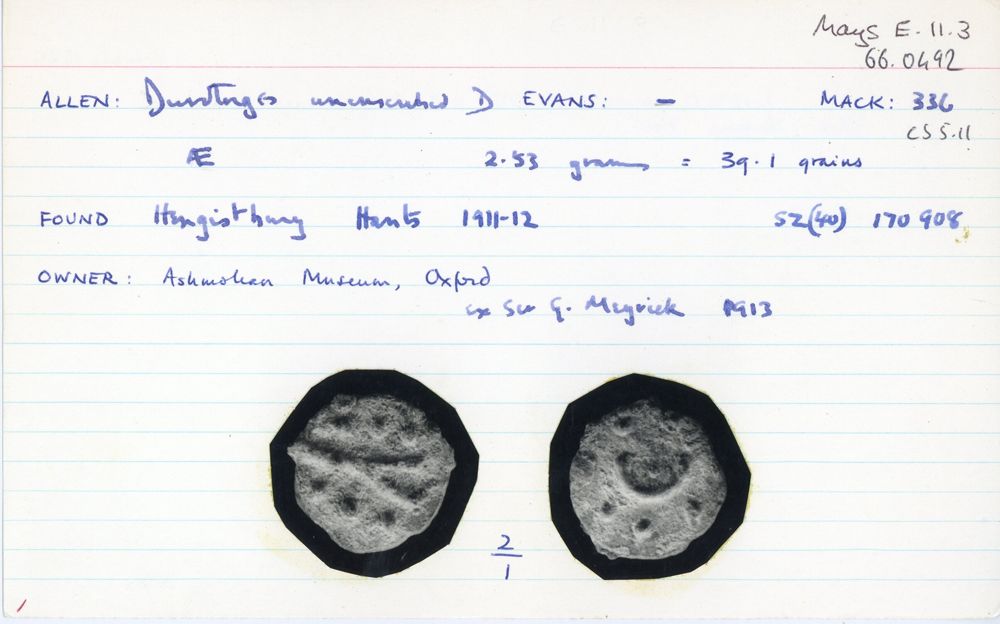 Mays E.11.3
66.0492
ALLEN: Durotriges uninscribed D EVANS: – MACK: 336
CS5.11
Æ 2.53 grams = 39.1 grains
FOUND Hengistbury Hants 1911-12 SZ(40) 170 908
OWNER: Ashmolean Museum, Oxford
ex Sir G. Meyrick 1913
2
1